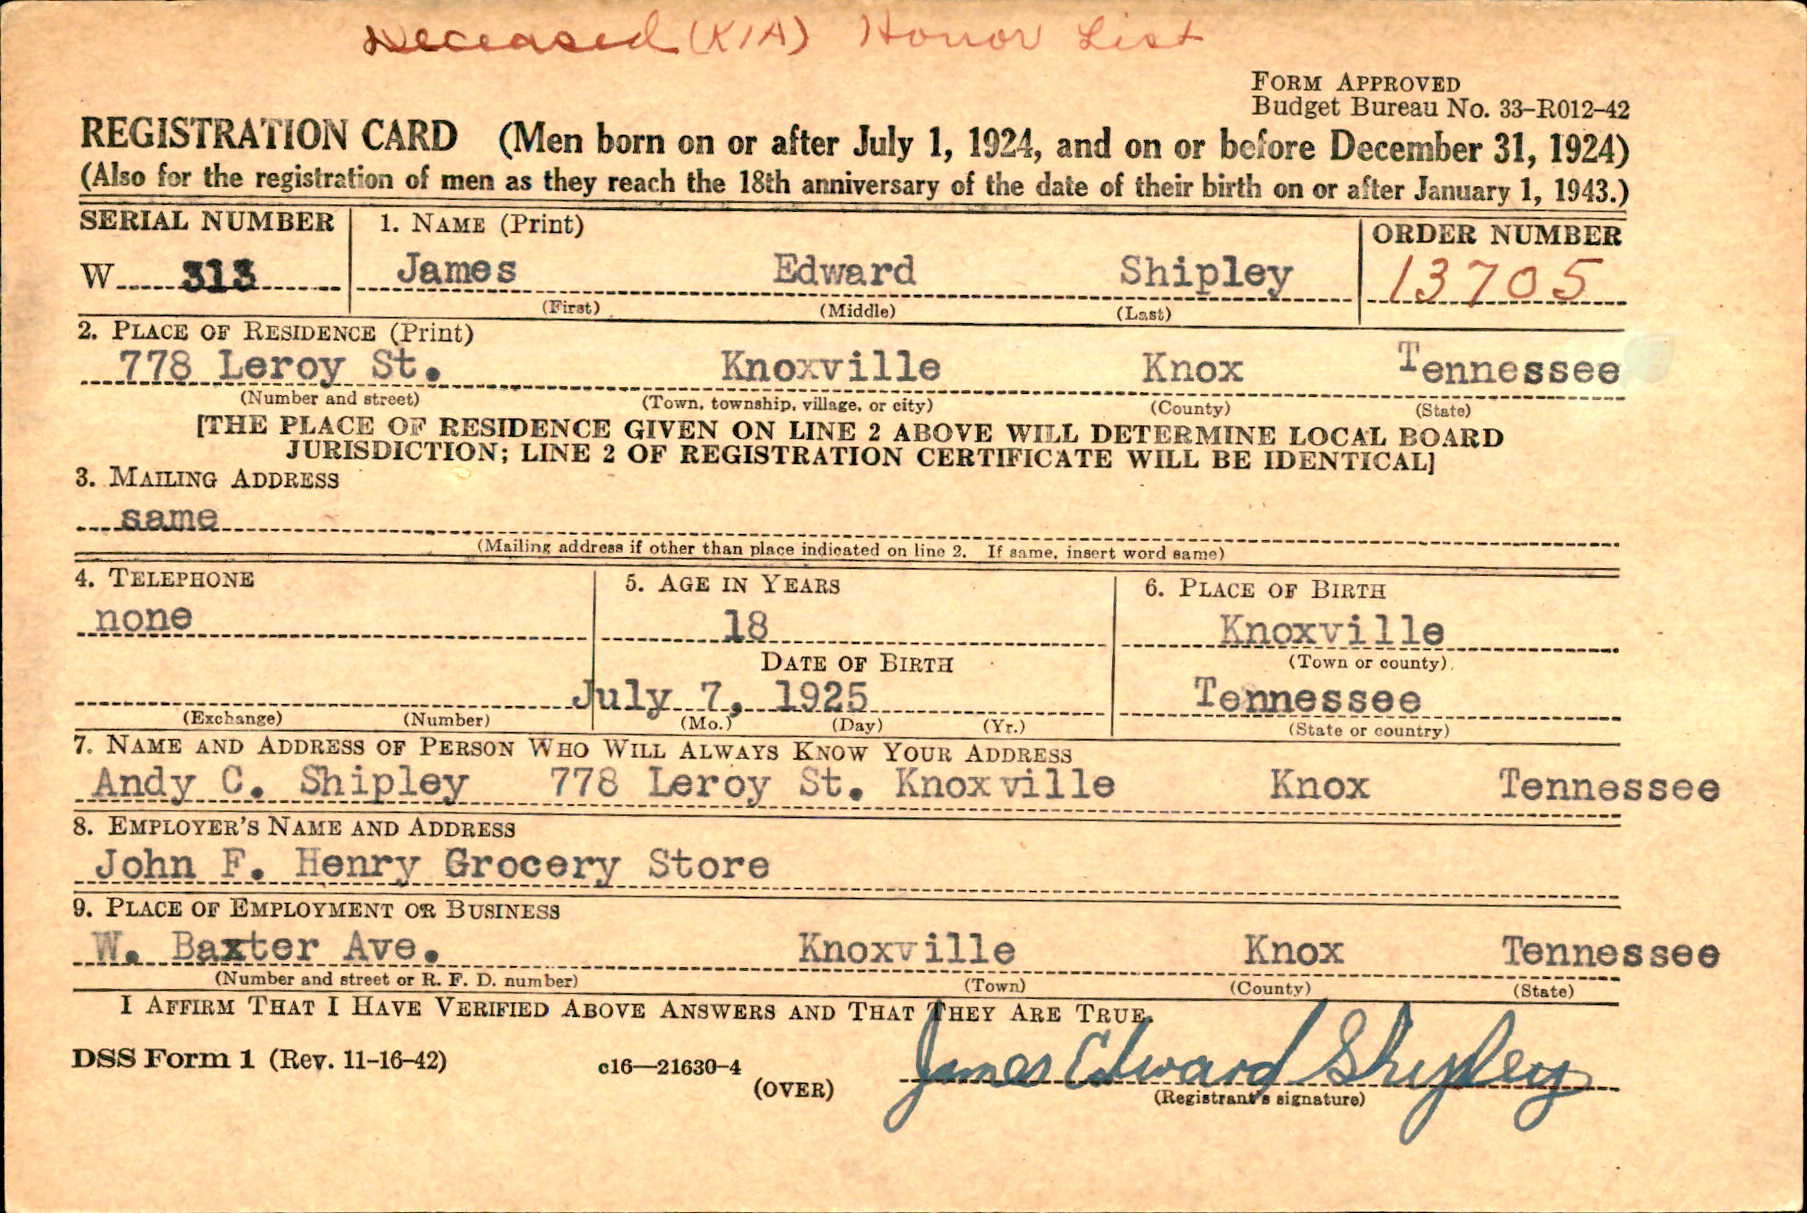 Deceased (KIA) Honor List
FORM APPROVED
Budget Bureau No. 33-R012-42
REGISTRATION CARD (Men born on or after July 1, 1924, and on or before December 31, 1924)
(Also for the registration of men as they reach the 18th anniversary of the date of their birth on or after January 1, 1943.)
SERIAL NUMBER 1. NAME (Print) ORDER NUMBER
W 313 James Edward Shipley 13705
(First) (Middle) (Last)
2. PLACE OF RESIDENCE (Print)
778 Leroy St. Knoxville Knox Tennessee
(Number and street) (Town, township, village, or city) (County) (State)
[THE PLACE OF RESIDENCE GIVEN ON LINE 2 ABOVE WILL DETERMINE LOCAL BOARD
JURISDICTION; LINE 2 OF REGISTRATION CERTIFICATE WILL BE IDENTICAL]
3. MAILING ADDRESS
same
(Mailing address if other than place indicated on line 2. If same, insert word same)
4. TELEPHONE 5. AGE IN YEARS 6. PLACE OF BIRTH
none 18 Knoxville
DATE OF BIRTH (Town or county)
July 7, 1925 Tennessee
(Exchange) (Number) (Mo.) (Day) (Yr.) (State or country)
7. NAME AND ADDRESS OF PERSON WHO WILL ALWAYS KNOW YOUR ADDRESS
Andy C. Shipley 778 Leroy St. Knoxville Knox Tennessee
8. EMPLOYER'S NAME AND ADDRESS
John F. Henry Grocery Store
9. PLACE OF EMPLOYMENT OR BUSINESS
W. Baxter Ave. Knoxville Knox Tennessee
(Number and street or R. F. D. number) (Town) (County) (State)
I AFFIRM THAT I HAVE VERIFIED ABOVE ANSWERS AND THAT THEY ARE TRUE.
DSS Form 1 (Rev. 11-16-42) c16—21630-4 (OVER) James Edward Shipley
(Registrant's signature)